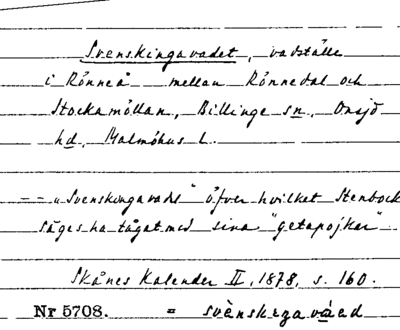 Svenskingavadet, vadställe
i Rönneå mellan Rönnedal och
Stockamöllan, Billinge sn, Onsjö
hd, Malmöhus l.
-- "Svenskingavadet" öfver hvilket Stenbock
säges ha tågat med sina "getapojkar"
Skånes Kalender II, 1878, s. 160.
Nr 5708. =